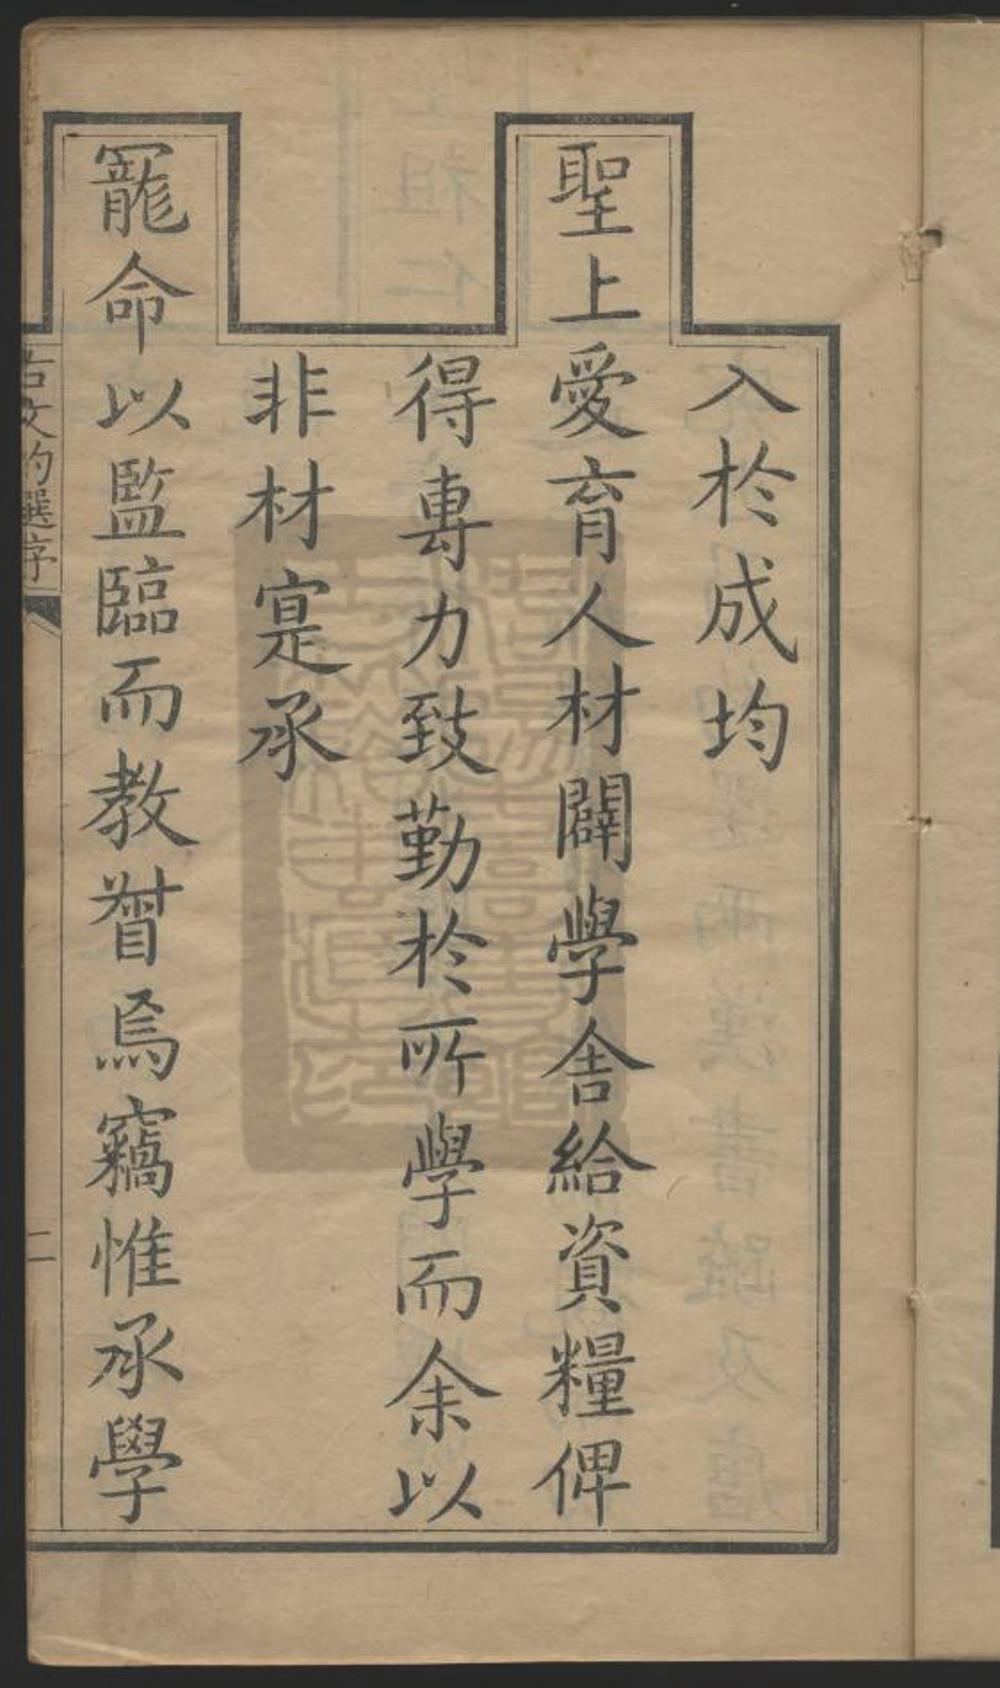 入於成均
聖上愛育人材闢學舍給資糧俾
得專力致勤於所學而余以
非材寔承
寵命以監臨而教督焉竊惟承學
古文約選序
二